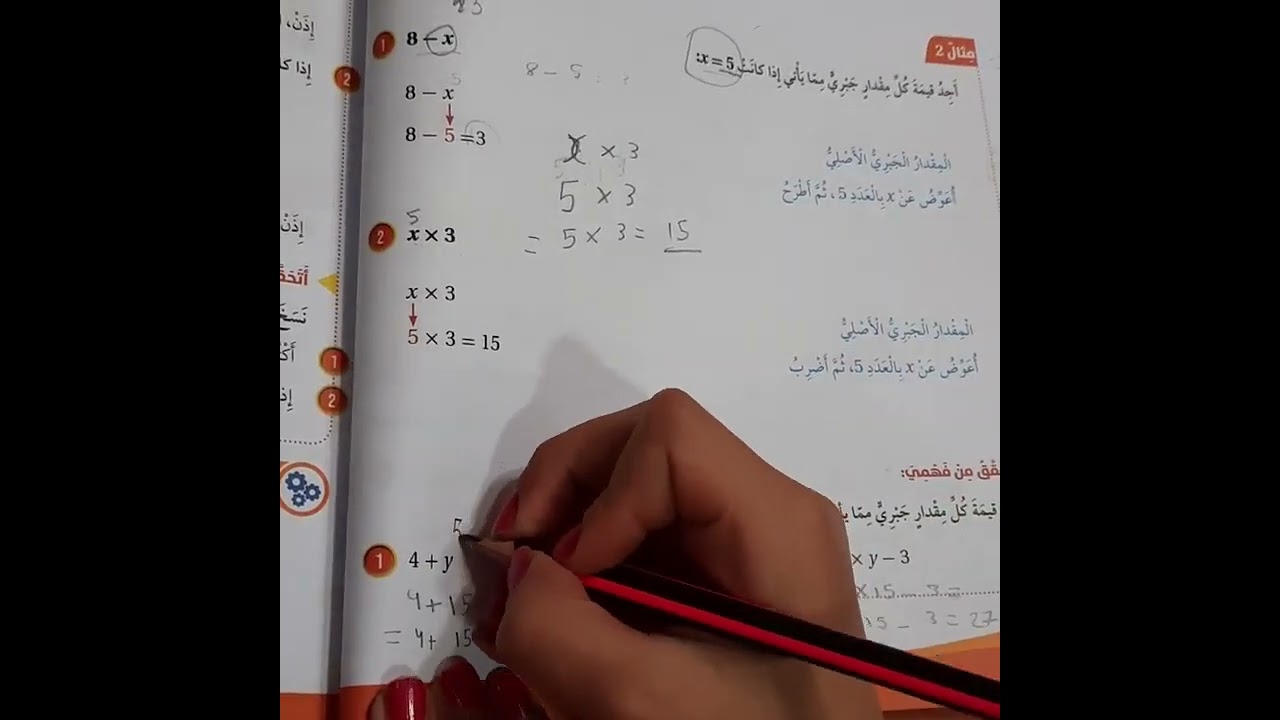 مِثالٌ 2
أَجِدُ قيمَةَ كُلِّ مِقْدارٍ جَبْرِيٍّ مِمّا يَأْتي إِذا كانَتْ x = 5:
1 8 − x
8 − 5
8 − x
الْمِقْدارُ الْجَبْرِيُّ الْأَصْلِيُّ
8 − 5 = 3
أُعَوِّضُ عَنْ x بِالْعَدَدِ 5، ثُمَّ أَطْرَحُ
x × 3
5 × 3
= 5 × 3 = 15
5
2 x × 3
x × 3
الْمِقْدارُ الْجَبْرِيُّ الْأَصْلِيُّ
5 × 3 = 15
أُعَوِّضُ عَنْ x بِالْعَدَدِ 5، ثُمَّ أَضْرِبُ
مِنْ فَهْمِيَ:
قيمَةَ كُلِّ مِقْدارٍ جَبْرِيٍّ مِمّا
5
1 4 + y
4 + 15
= 4 + 15
× y − 3
× 15 3 =
− 3 = 27
إِذَنْ،
2 إِذا
إِذَنْ
1
2